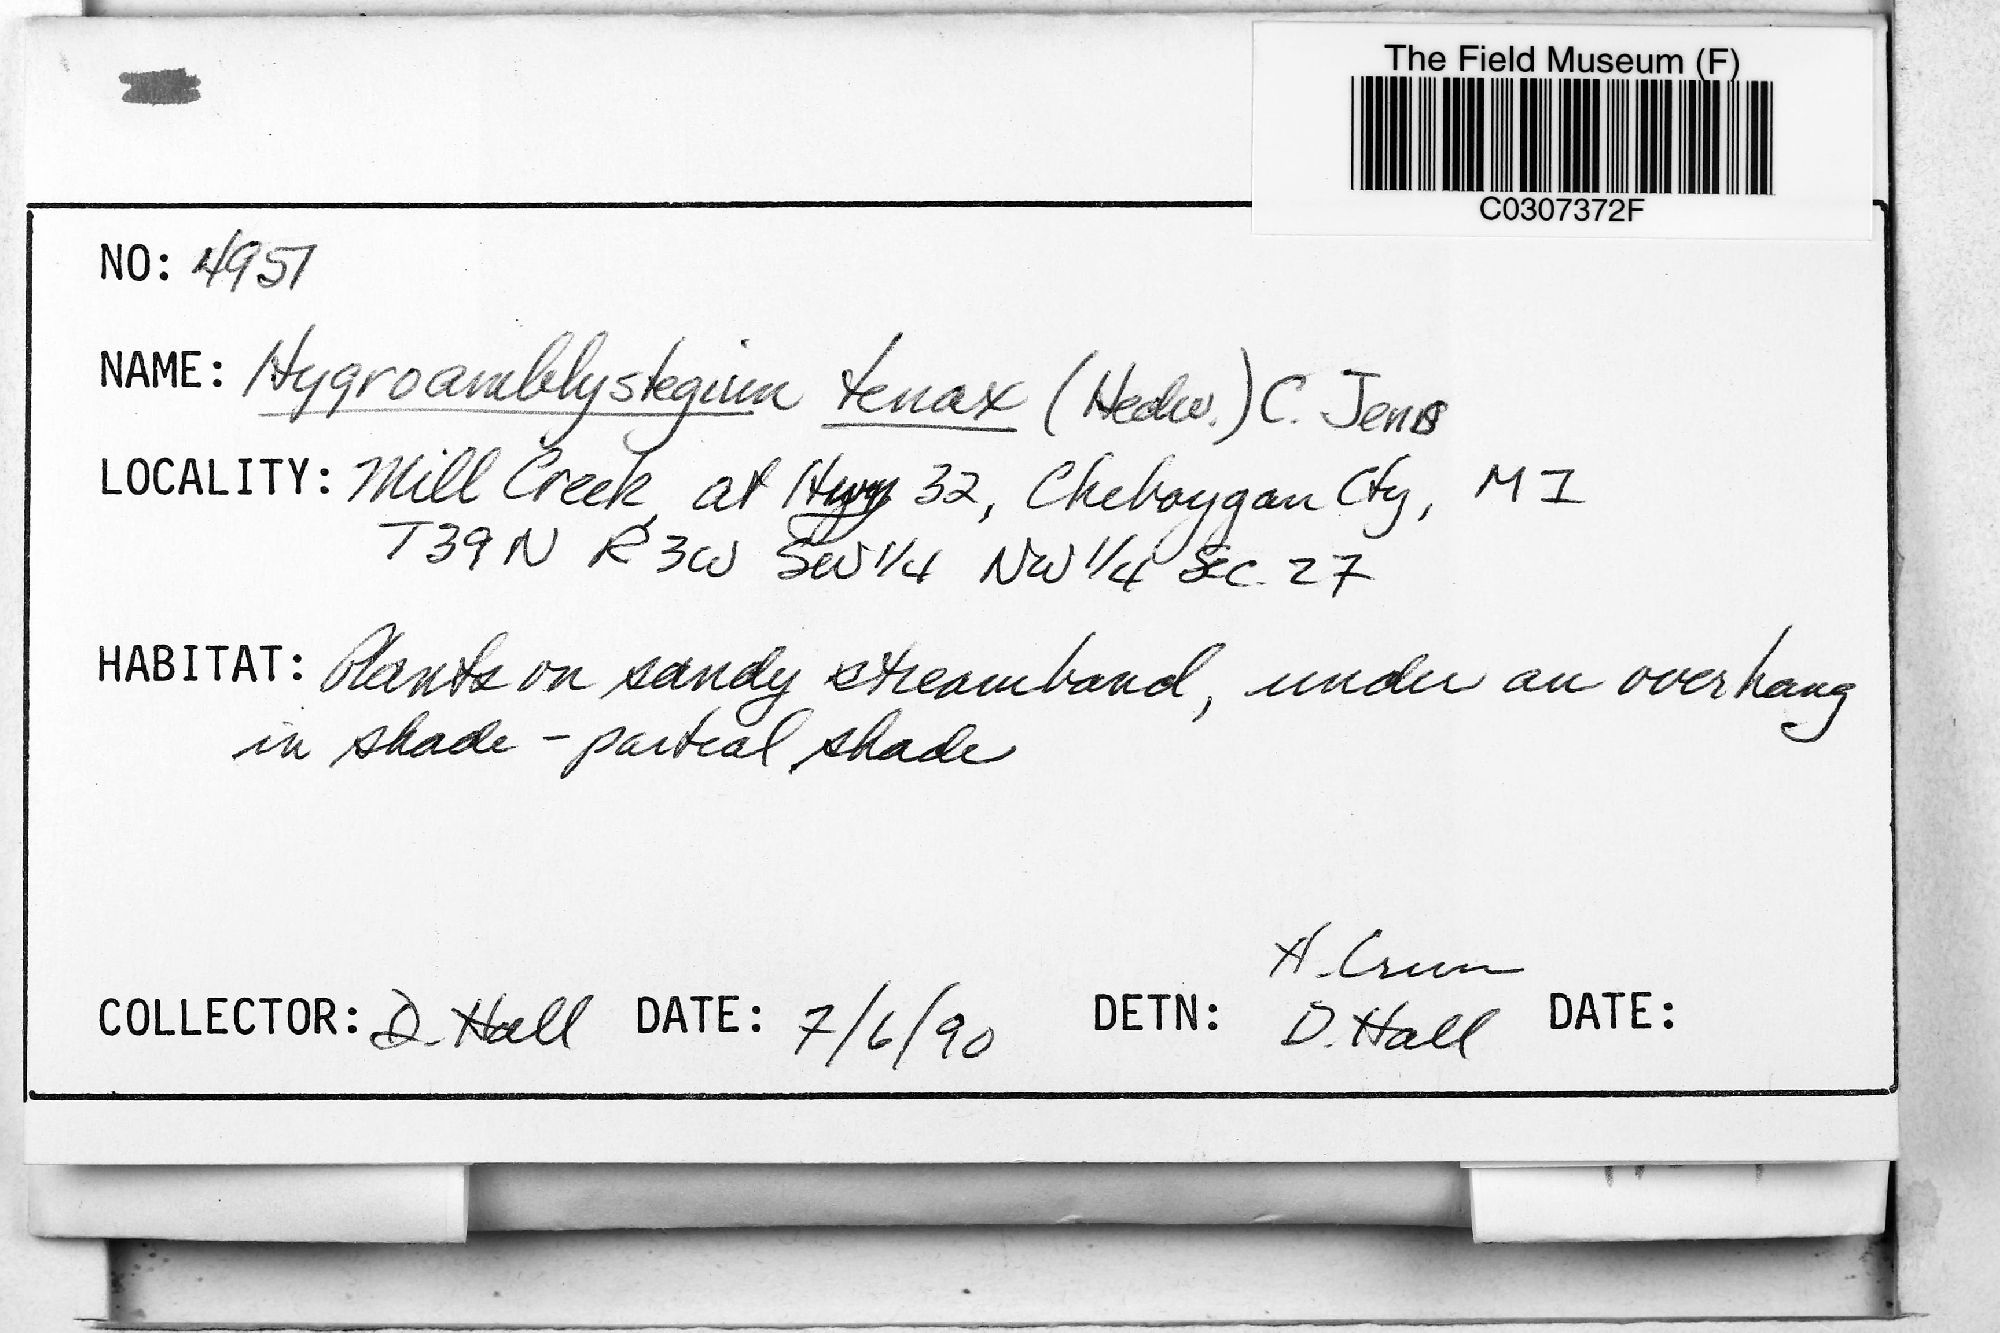 The Field Museum (F)
C0307372F
NO: 4951
NAME: Hygroamblystegium tenax (Hedw.) C. Jens
LOCALITY: Mill Creek, at Hwy 32, Cheboygan Cty, MI
T39N R3W SW 1/4 NW 1/4 Sec. 27
HABITAT: Plants on sandy streamband, under an overhang
in shade - partial shade
H. Crum
COLLECTOR: D. Hall DATE: 7/6/90 DETN: D. Hall DATE: